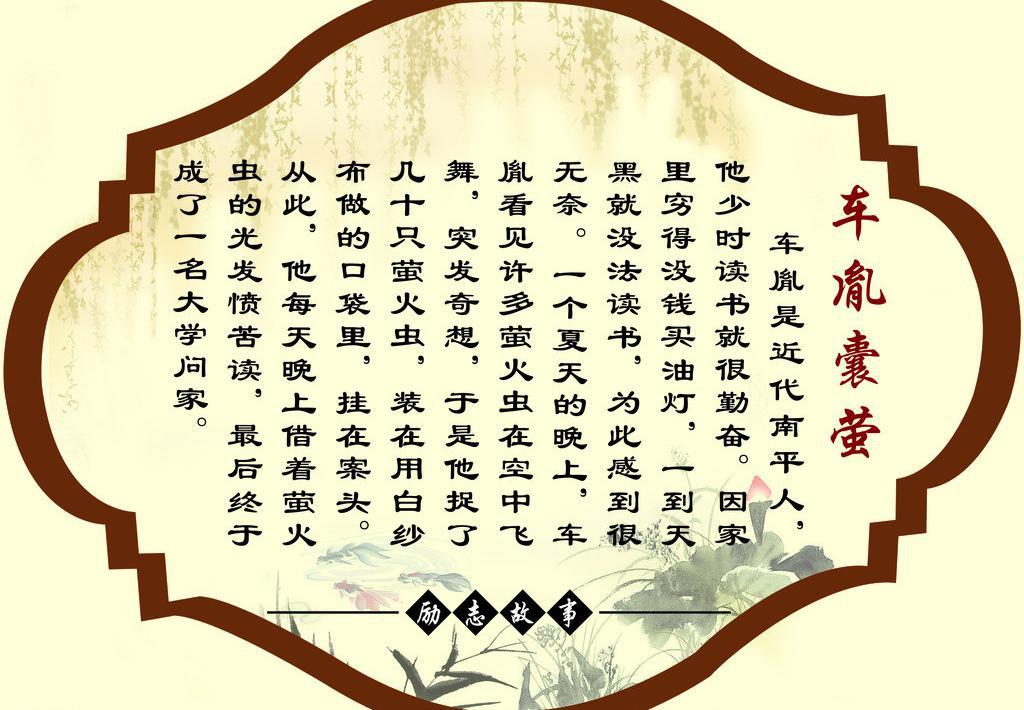 车胤囊萤
车胤是近代南平人，
他少时读书就很勤奋。因家
里穷得没钱买油灯，一到天
黑就没法读书，为此感到很
无奈。一个夏天的晚上，车
胤看见许多萤火虫在空中飞
舞，突发奇想，于是他捉了
几十只萤火虫，装在用白纱
布做的口袋里，挂在案头。
从此，他每天晚上借着萤火
虫的光发愤苦读，最后终于
成了一名大学问家。
励志故事